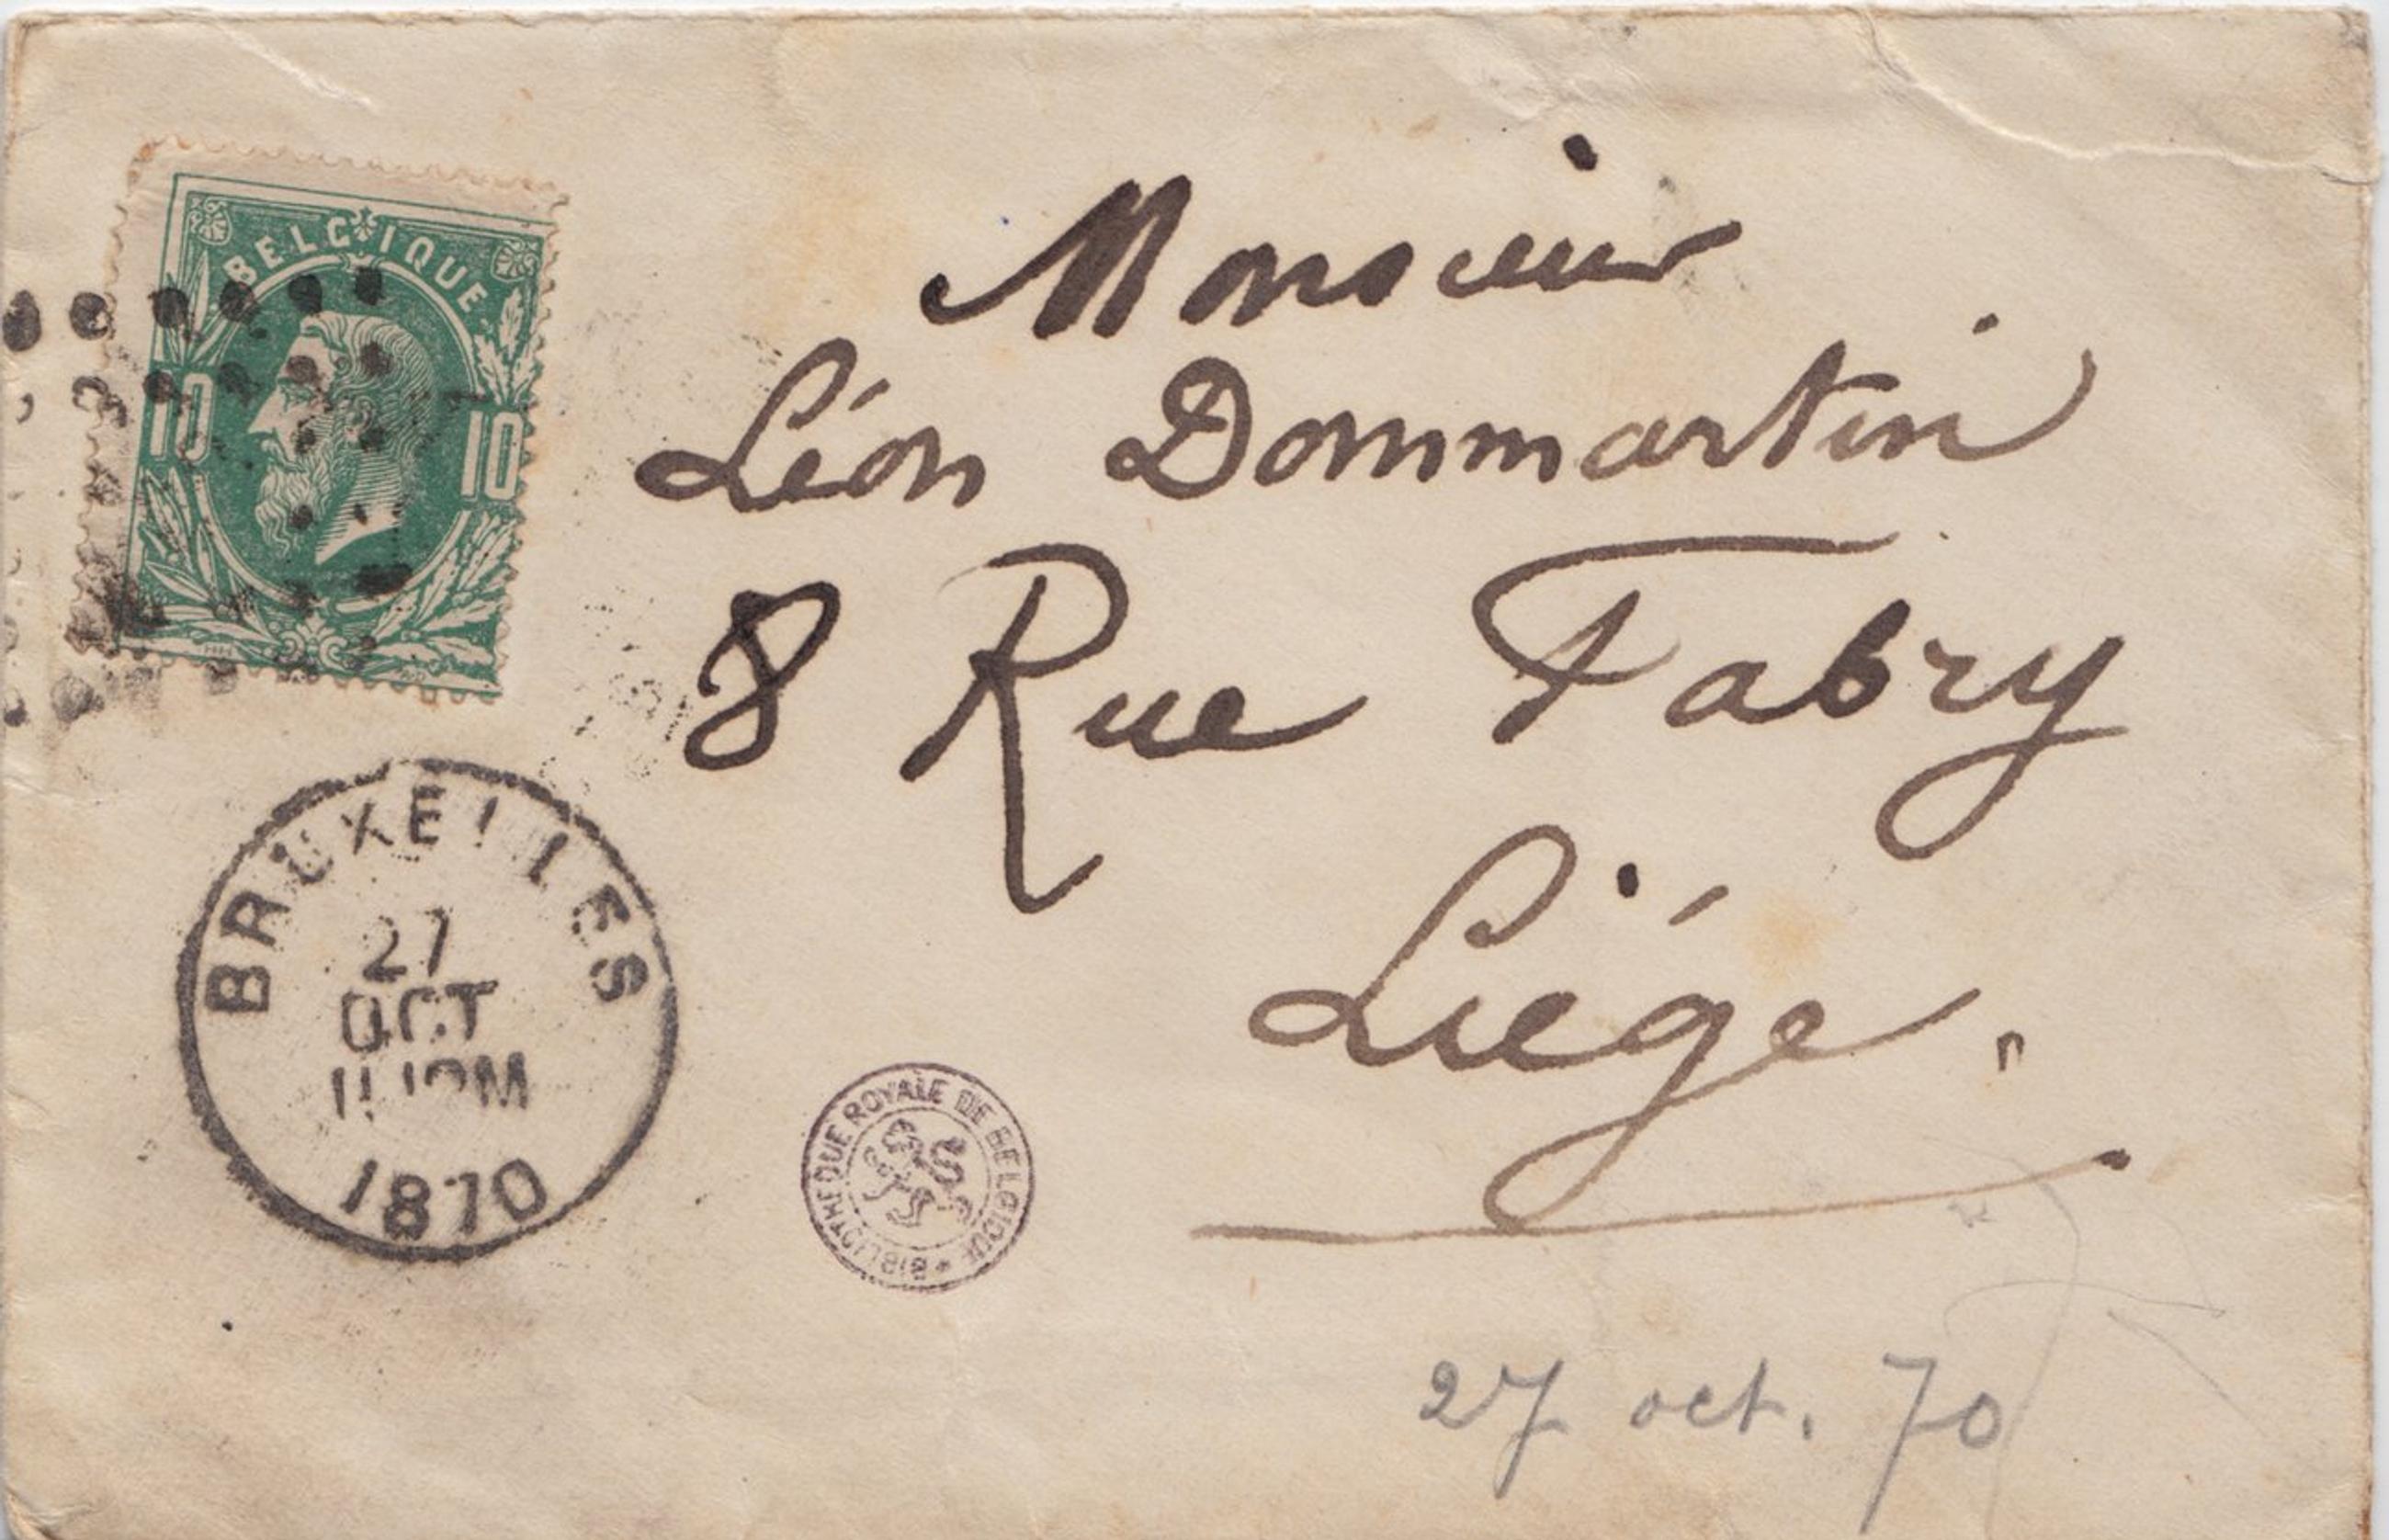 BELGIQUE
10 10
Monsieur
Léon Dommartin
8 Rue Fabry
Liége.
BRUXELLES
27
OCT
1870
BIBLIOTHEQUE ROYALE DE BELGIQUE *
27 oct. 70